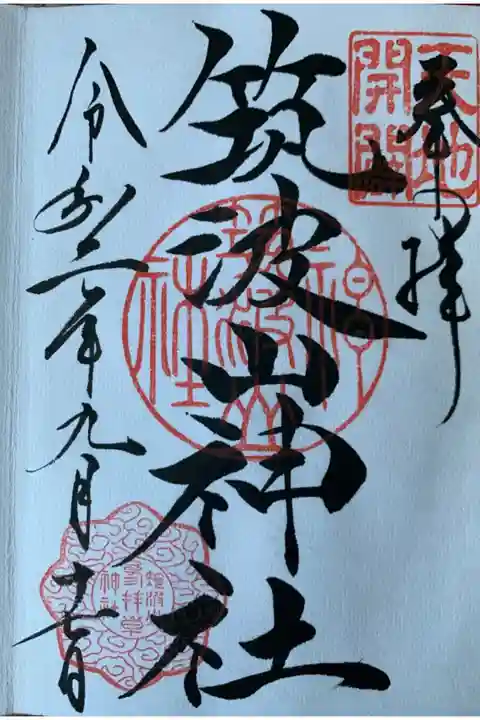 奉拝
天地
開闢
筑波山神社
筑波山
神社
令和二年九月十七日
筑波山
参拝章
神社